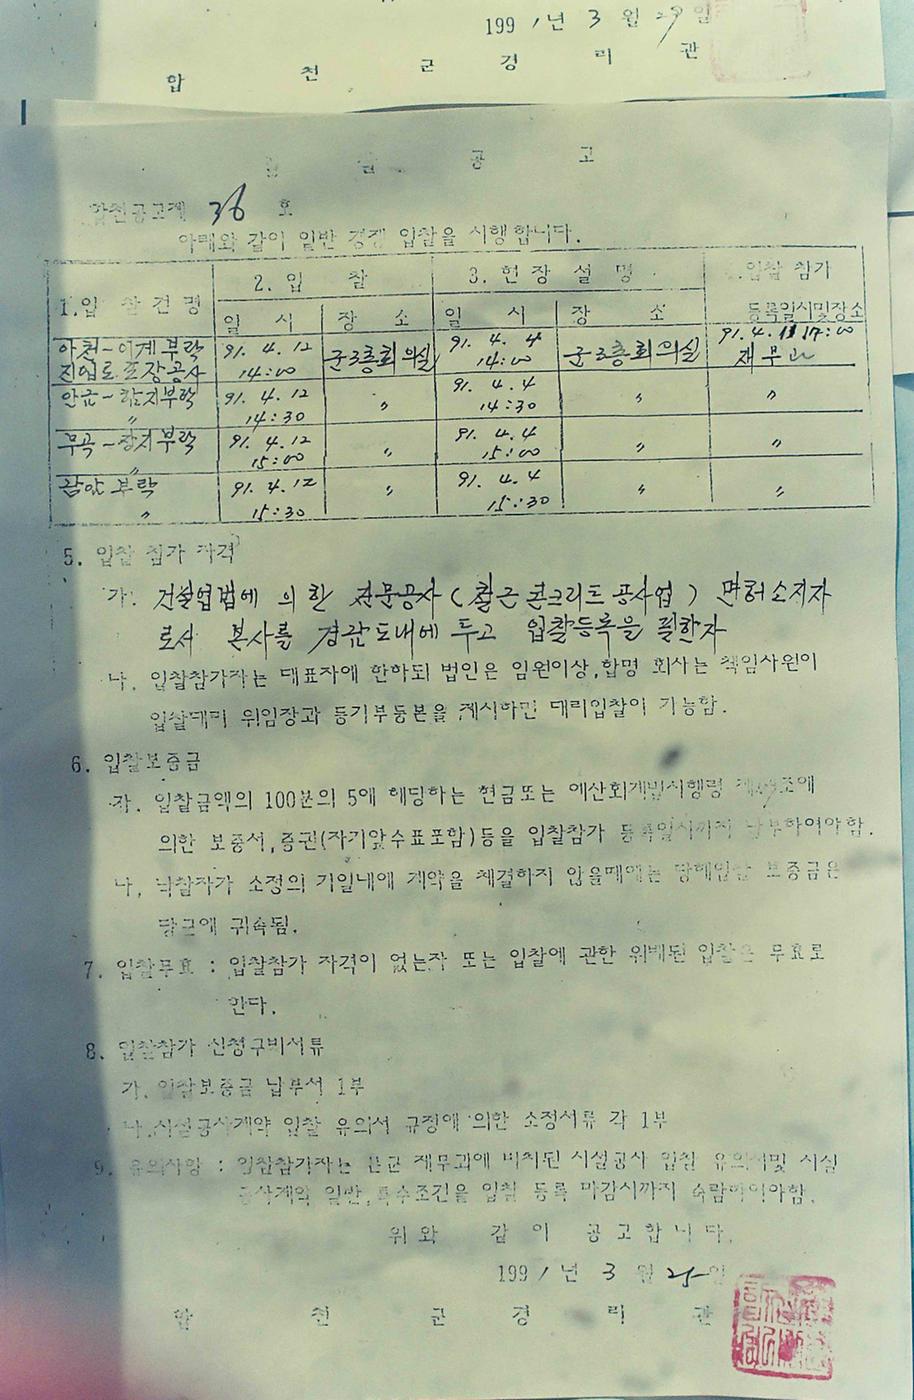 199 1년 3 월 29 일
합 천 군 경 리 관
입 찰 공 고
합천공고제 36 호
아래와 같이 일반 경쟁 입찰을 시행합니다.
1.입 찰 건 명 2. 입 찰 3. 현 장 설 명 4.입찰 참가
일 시 장 소 일 시 장 소 등록일시및장소
부락 91. 4. 12 군 회의실 91. 4. 4 군 회의실 91. 4. 11 17:00
진입로 포장공사 14:00 14:00 재무과
부락 91. 4. 12 〃 91. 4. 4 〃 〃
〃 14:30 14:30
무곡~장지부락 91. 4. 12 〃 91. 4. 4 〃 〃
〃 15:00 15:00
부락 91. 4. 12 〃 91. 4. 4 〃 〃
〃 15:30 15:30
5. 입찰 참가 자격
가. 건설업법에 의한 전문공사 (철근 콘크리트 공사업) 면허소지자
로서 본사를 경남도내에 두고 입찰등록을 필한자
나. 입찰참가자는 대표자에 한하되 법인은 임원이상,합명 회사는 책임사원이
입찰때마 위임장과 등기부등본을 제시하면 대리입찰이 가능함.
6. 입찰보증금
가. 입찰금액의 100분의 5에 해당하는 현금또는 예산회계법시행령
의한 보증서,증권(자기앞수표포함)등을 입찰참가 등록일시까지 납부하여야함.
나. 낙찰자가 소정의 기일내에 계약을 체결하지 않을때에는 당해입찰 보증금은
당군에 귀속됨.
7. 입찰무효 : 입찰참가 자격이 없는자 또는 입찰에 관한 위배된 입찰은 무효로
한다.
8. 입찰참가 신청구비서류
가. 입찰보증금 납부서 1부
나.시설공사계약 입찰 유의서 규정에 의한 소정서류 각 1부
9. 유의사항 : 입찰참가자는 본군 재무과에 비치된 시설공사 입찰 유의서및 시설
공사계약 일반,특수조건을 입찰 등록 마감시까지 숙람하여야함.
위와 같이 공고합니다.
199 1년 3 월 25일
합 천 군 경 리 관